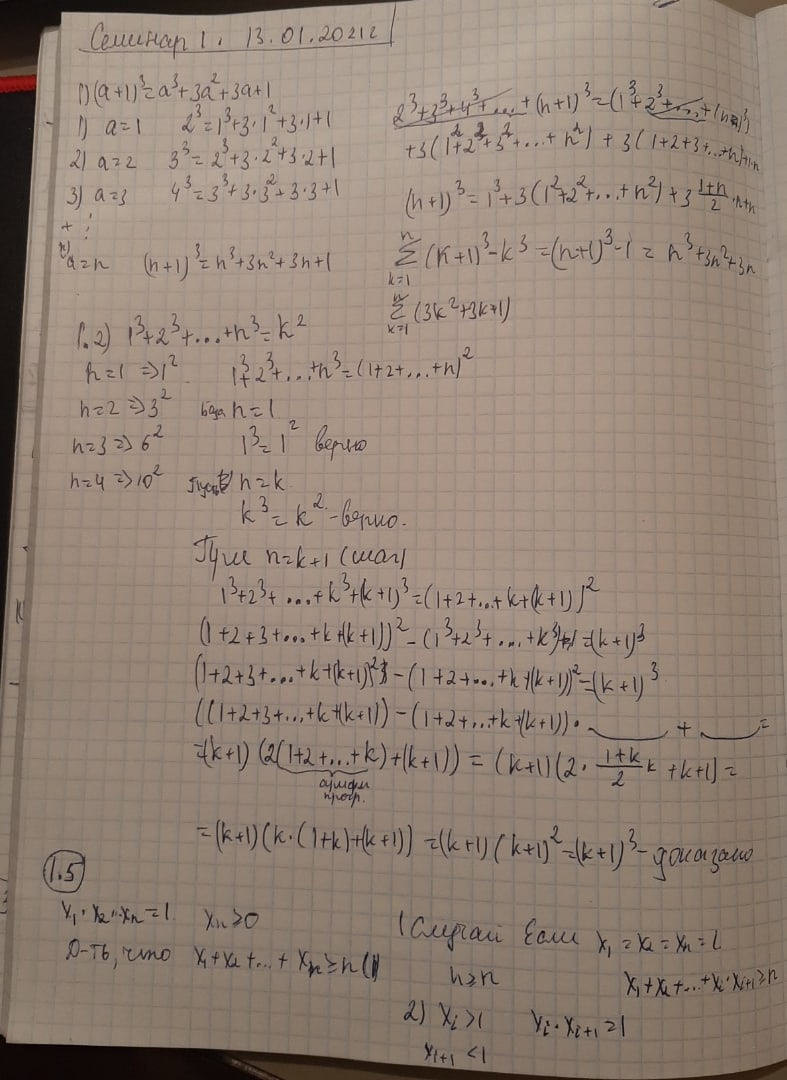 Семинар 1. 13.01.2021г
1) (a+1)³=a³+3a²+3a+1
1) a=1 2³=1³+3·1²+3·1+1
2) a=2 3³=2³+3·2²+3·2+1
3) a=3 4³=3³+3·3²+3·3+1
+ ⋮
n) a=n (n+1)³=n³+3n²+3n+1
2³+3³+4³+...+(n+1)³=(1³+2³+...+n³)
+3(1²+2²+3²+...+n²)+3(1+2+3+...+n)+1·n
(n+1)³=1³+3(1²+2²+...+n²)+3 (1+n)/2·n+n
∑ₖ₌₁ⁿ (k+1)³-k³=(n+1)³-1=n³+3n²+3n
∑ₖ₌₁ⁿ (3k²+3k+1)
1.2) 1³+2³+...+n³=k²
n=1 =>1² 1³+2³+...+n³=(1+2+...+n)²
n=2 =>3² база n=1
n=3=>6² 1³=1² верно
n=4 =>10² Пусть n=k
k³=k²-верно.
При n=k+1 (шаг)
1³+2³+...+k³+(k+1)³=(1+2+...+k+(k+1))²
(1+2+3+...+k+(k+1))²-(1³+2³+...+k³)=(k+1)³
(1+2+3+...+k+(k+1))²-(1+2+...+k+(k+1))²=(k+1)³
((1+2+3+...+k+(k+1))-(1+2+...+k+(k+1))· + =
=(k+1)(2(1+2+...+k)+(k+1))=(k+1)(2·(1+k)/2 k+k+1)=
арифм
прогр.
=(k+1)(k·(1+k)+(k+1))=(k+1)(k+1)²=(k+1)³-доказано
1.5
x₁·x₂··xₙ=1 xₙ>0
Д-ть, что x₁+x₂+...+xₙ≥n
1 Случай Если x₁=x₂=xₙ=1
n≥n
x₁+x₂+...+xᵢ·xᵢ₊₁≥n
2) xᵢ>1 xᵢ·xᵢ₊₁=1
xᵢ₊₁<1